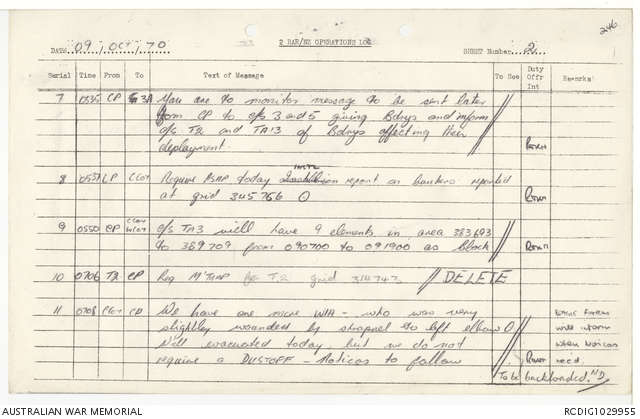 246
DATE 09 / OCT / 70 2 RAR/NZ OPERATIONS LOG SHEET Number 2
Serial Time From To Text of Message To See Duty Offr Int Remarks
7 0535 CP 3A You are to monitor message to be sent later
from CP to c/s 3 and 5 giving Bdrys and inform
c/s T2 and TA13 of Bdrys affecting their
deployment
8 CP Require ASAP today INTL
report on bunkers reported
at grid 345766
9 0550 CP c/s TA3 will have 9 elements in area 383693
to 389709 from 090700 to 091900 as block
10 0706 T2 CP Req for T2 grid // DELETE
11 0708 We have one more WIA - who was very
slightly wounded by shrapnel to left elbow
Will evacuated today, but we do not
require a DUSTOFF - Noticas to follow
will inform
when Noticas
recd.
To be backloaded.
AUSTRALIAN WAR MEMORIAL RCDIG1029955